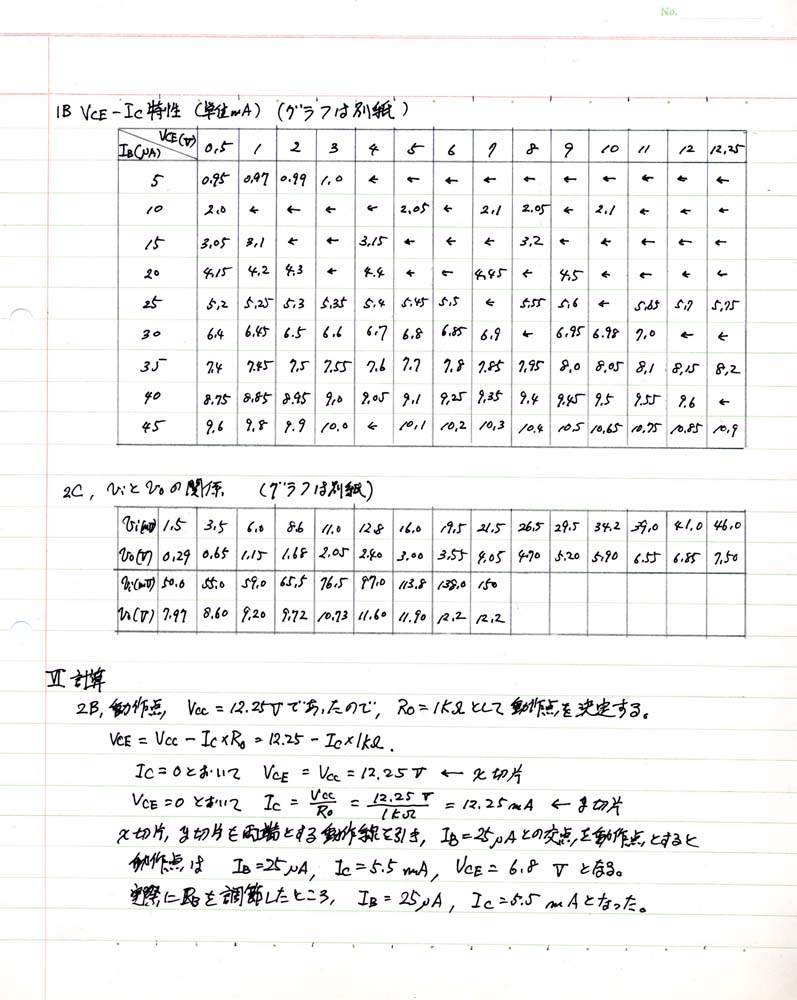 No.
1B VCE-IC 特性 (単位mA) (グラフは別紙)
VCE(V) 0.5 1 2 3 4 5 6 7 8 9 10 11 12 12.25
IB(μA)
5 0.95 0.97 0.99 1.0 ← ← ← ← ← ← ← ← ← ←
10 2.0 ← ← ← ← 2.05 ← 2.1 2.05 ← 2.1 ← ← ←
15 3.05 3.1 ← ← 3.15 ← ← ← 3.2 ← ← ← ← ←
20 4.15 4.2 4.3 ← 4.4 ← ← 4.45 ← 4.5 ← ← ← ←
25 5.2 5.25 5.3 5.35 5.4 5.45 5.5 ← 5.55 5.6 ← 5.65 5.7 5.75
30 6.4 6.45 6.5 6.6 6.7 6.8 6.85 6.9 ← 6.95 6.98 7.0 ← ←
35 7.4 7.45 7.5 7.55 7.6 7.7 7.8 7.85 7.95 8.0 8.05 8.1 8.15 8.2
40 8.75 8.85 8.95 9.0 9.05 9.1 9.25 9.35 9.4 9.45 9.5 9.55 9.6 ←
45 9.6 9.8 9.9 10.0 ← 10.1 10.2 10.3 10.4 10.5 10.65 10.75 10.85 10.9
2C, viとvoの関係 (グラフは別紙)
vi(mV) 1.5 3.5 6.0 8.6 11.0 12.8 16.0 19.5 21.5 26.5 29.5 34.2 39.0 41.0 46.0
vo(V) 0.29 0.65 1.15 1.68 2.05 2.40 3.00 3.55 4.05 4.70 5.20 5.90 6.55 6.85 7.50
vi(mV) 50.0 55.0 59.0 65.5 76.5 97.0 113.8 138.0 150
vo(V) 7.97 8.60 9.20 9.72 10.73 11.60 11.90 12.2 12.2
VI 計算
2B, 動作点, Vcc = 12.25Vであったので, Ro = 1kΩとして動作点を決定する。
VCE = Vcc - Ic×Ro = 12.25 - Ic×1kΩ.
Ic=0とおいて VCE = Vcc = 12.25 V ← x切片
VCE=0 とおいて Ic = Vcc/Ro = 12.25 V/1kΩ = 12.25 mA ← y切片
x切片, y切片を両端とする動作線を引き, IB=25μAとの交点を動作点とすると
動作点は IB=25μA, Ic=5.5 mA, VCE = 6.8 V となる。
実際にRBを調節したところ, IB = 25μA, Ic=5.5 mAとなった。